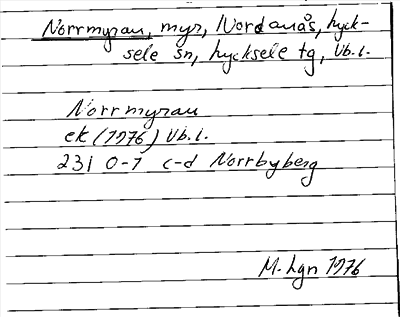 Norrmyran, myr, Nordanås, hyck-
sele sn, hycksele tg, Vb.l.
Norrmyran
ek (1976) Vb.l.
23I 0-1 c-d Norrbyberg
M. Lgn 1976